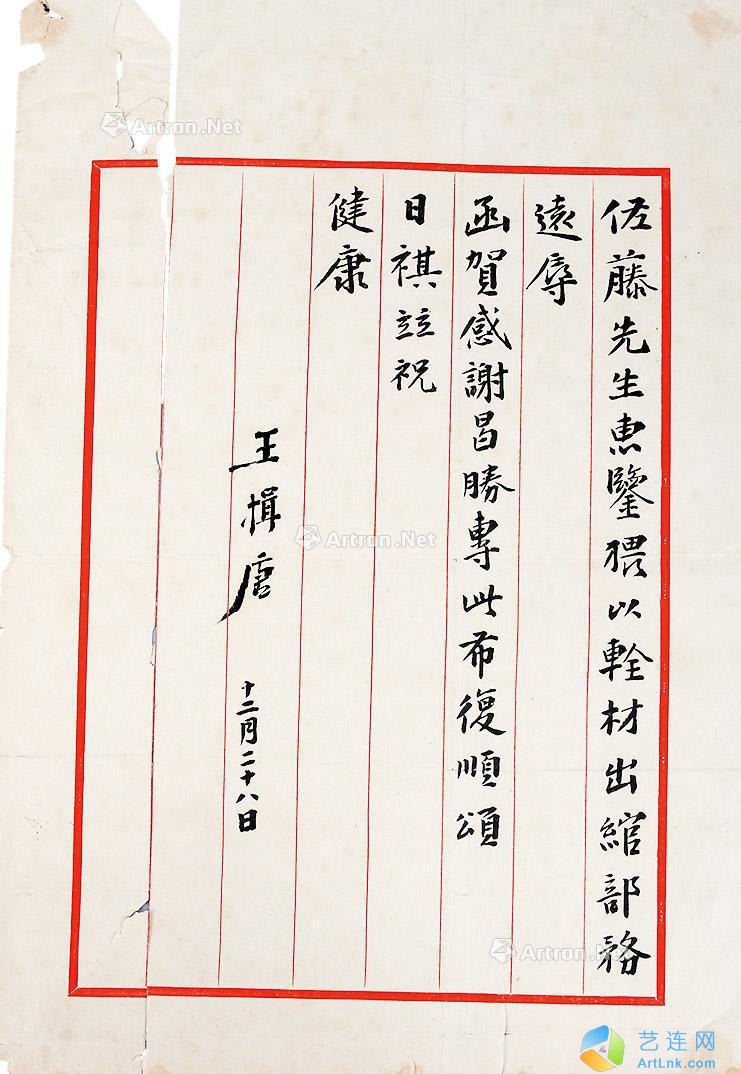 佐藤先生惠鑒猥以輇材出綰部務
遠辱
函賀感謝曷勝專此布復順頌
日祺竝祝
健康
王揖唐
十二月二十八日
Artron.Net
Artron.Net
Artron.Net
艺连网
ArtLnk.com